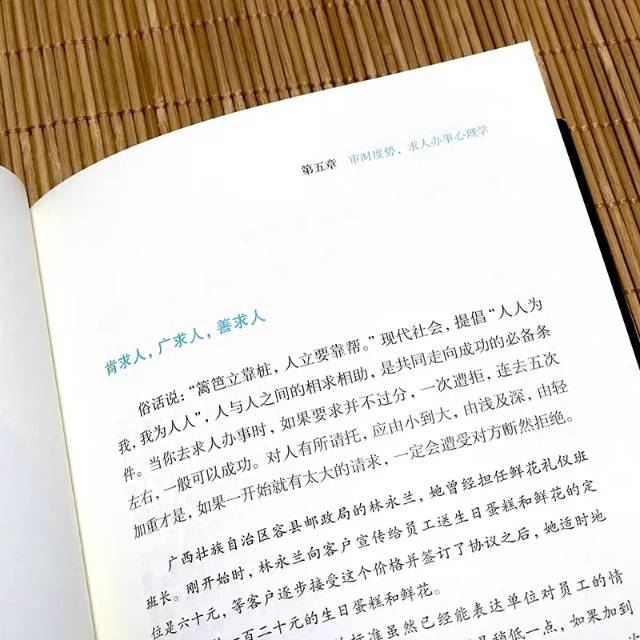 第五章 审时度势，求人办事心理学
肯求人，广求人，善求人
俗话说：“篱笆立靠桩，人立要靠帮。”现代社会，提倡“人人为
我，我为人人”，人与人之间的相求相助，是共同走向成功的必备条
件。当你去求人办事时，如果要求并不过分，一次遭拒，连去五次
左右，一般可以成功。对人有所请托，应由小到大，由浅及深，由轻
加重才是，如果一开始就有太大的请求，一定会遭受对方断然拒绝。
广西壮族自治区容县邮政局的林永兰，她曾经担任鲜花礼仪班
班长。刚开始时，林永兰向客户宣传给员工送生日蛋糕和鲜花的定
位是六十元，等客户逐步接受这个价格并签订了协议之后，她适时地
一百二十元的生日蛋糕和鲜花。
标准虽然已经能表达单位对员工的情
稍低一点，如果加到